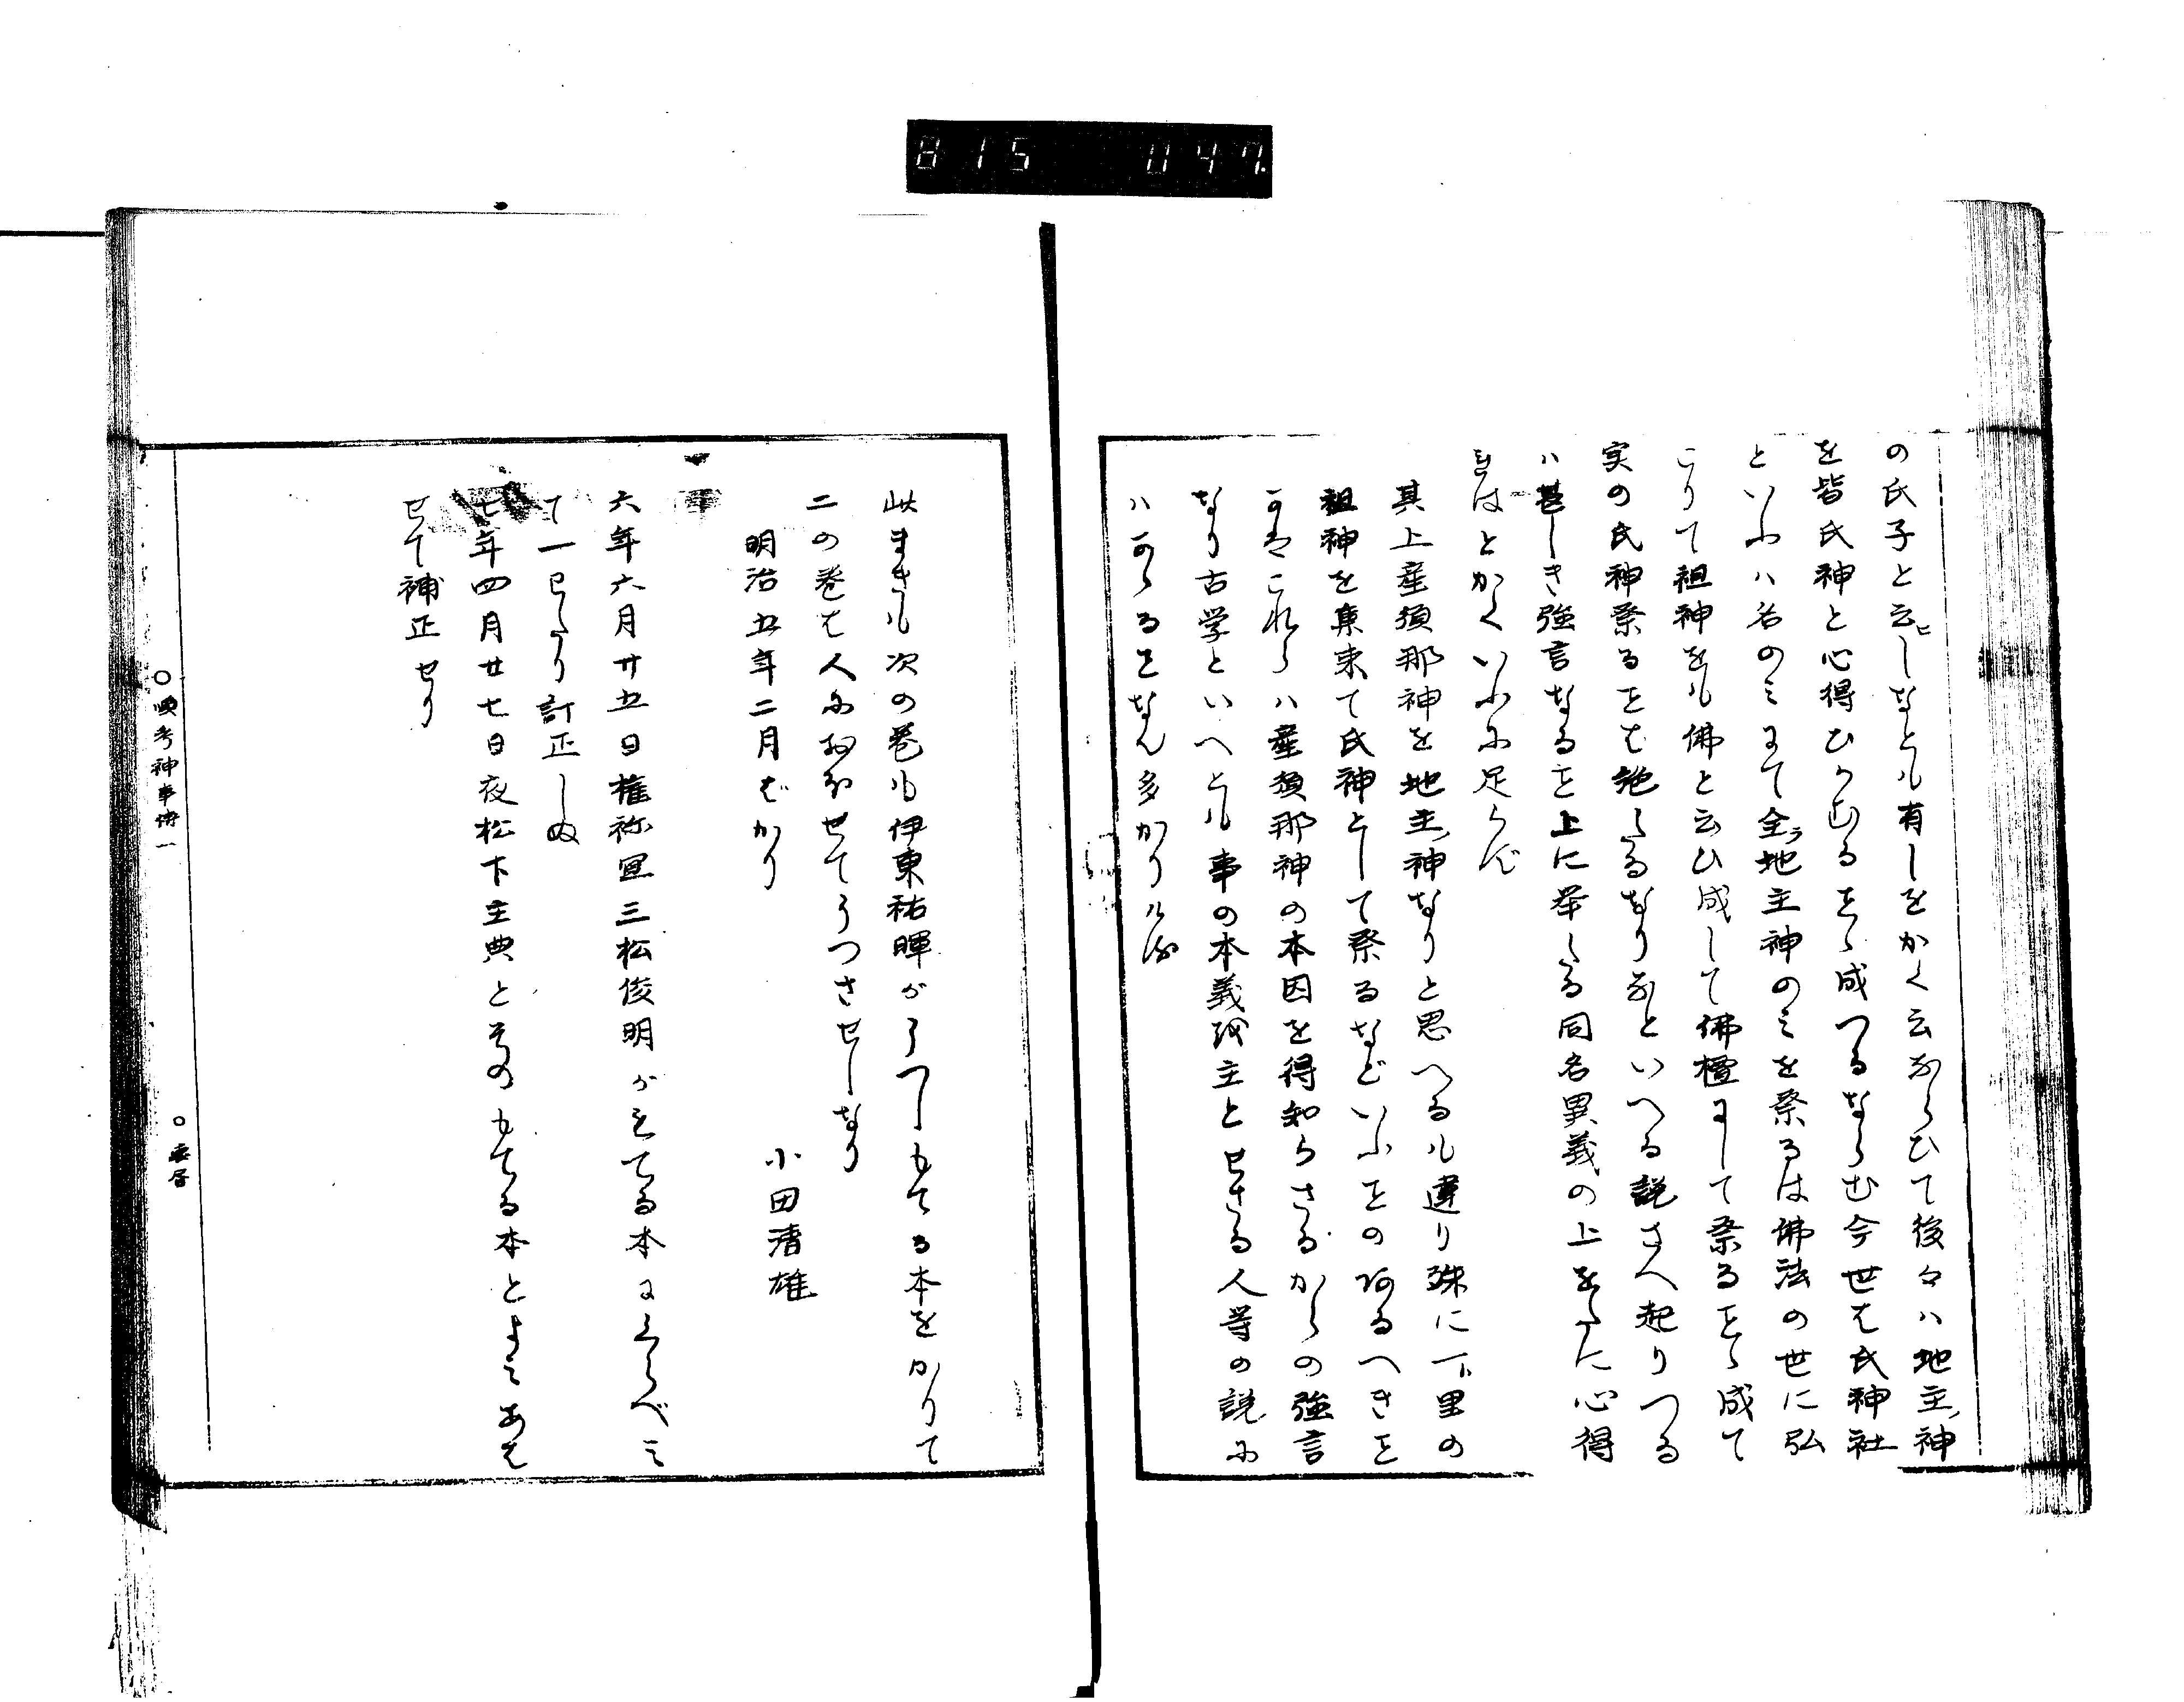 815 047
の氏子と云ヒしなとも有しをかく云ならひて後々ハ地主ノ神
を皆氏神と心得ひかむることゝ成つるならむ今世は氏神社
といふハ名のミにて全ラ地主神のミを祭るは佛法の世に弘
こりて祖神をも佛と云ひ成して佛檀にして祭ることゝ成て
実の氏神祭ることは絶たるなりなといへる説さへ起りつる
ハ甚しき強言なること上に举たる同名異義の上をたに心得
はとかくいふに足らず
其上産須那神を地主ノ神なりと思へるも違り殊に一ト里の
祖神を集来て氏神として祭るなどいふことの有るへきこと
かはこれらハ産須那神の本因を得知らさるからの強言
なり古学といへとも事の本義を主とせさる人等の説に
ハかゝることなん多かりける
此まきも次の巻も伊東祐暉がうつしもてる本をかりて
二の巻は人におほせてうつさせしなり
明治五年二月ばかり
小田清雄
六年六月廿五日権祢宜三松俊明がもてる本にくらべミ
て一わたり訂正しぬ
七年四月廿七日夜松下主典とその もてる本とよミあは
せて補正せり
神事傳一